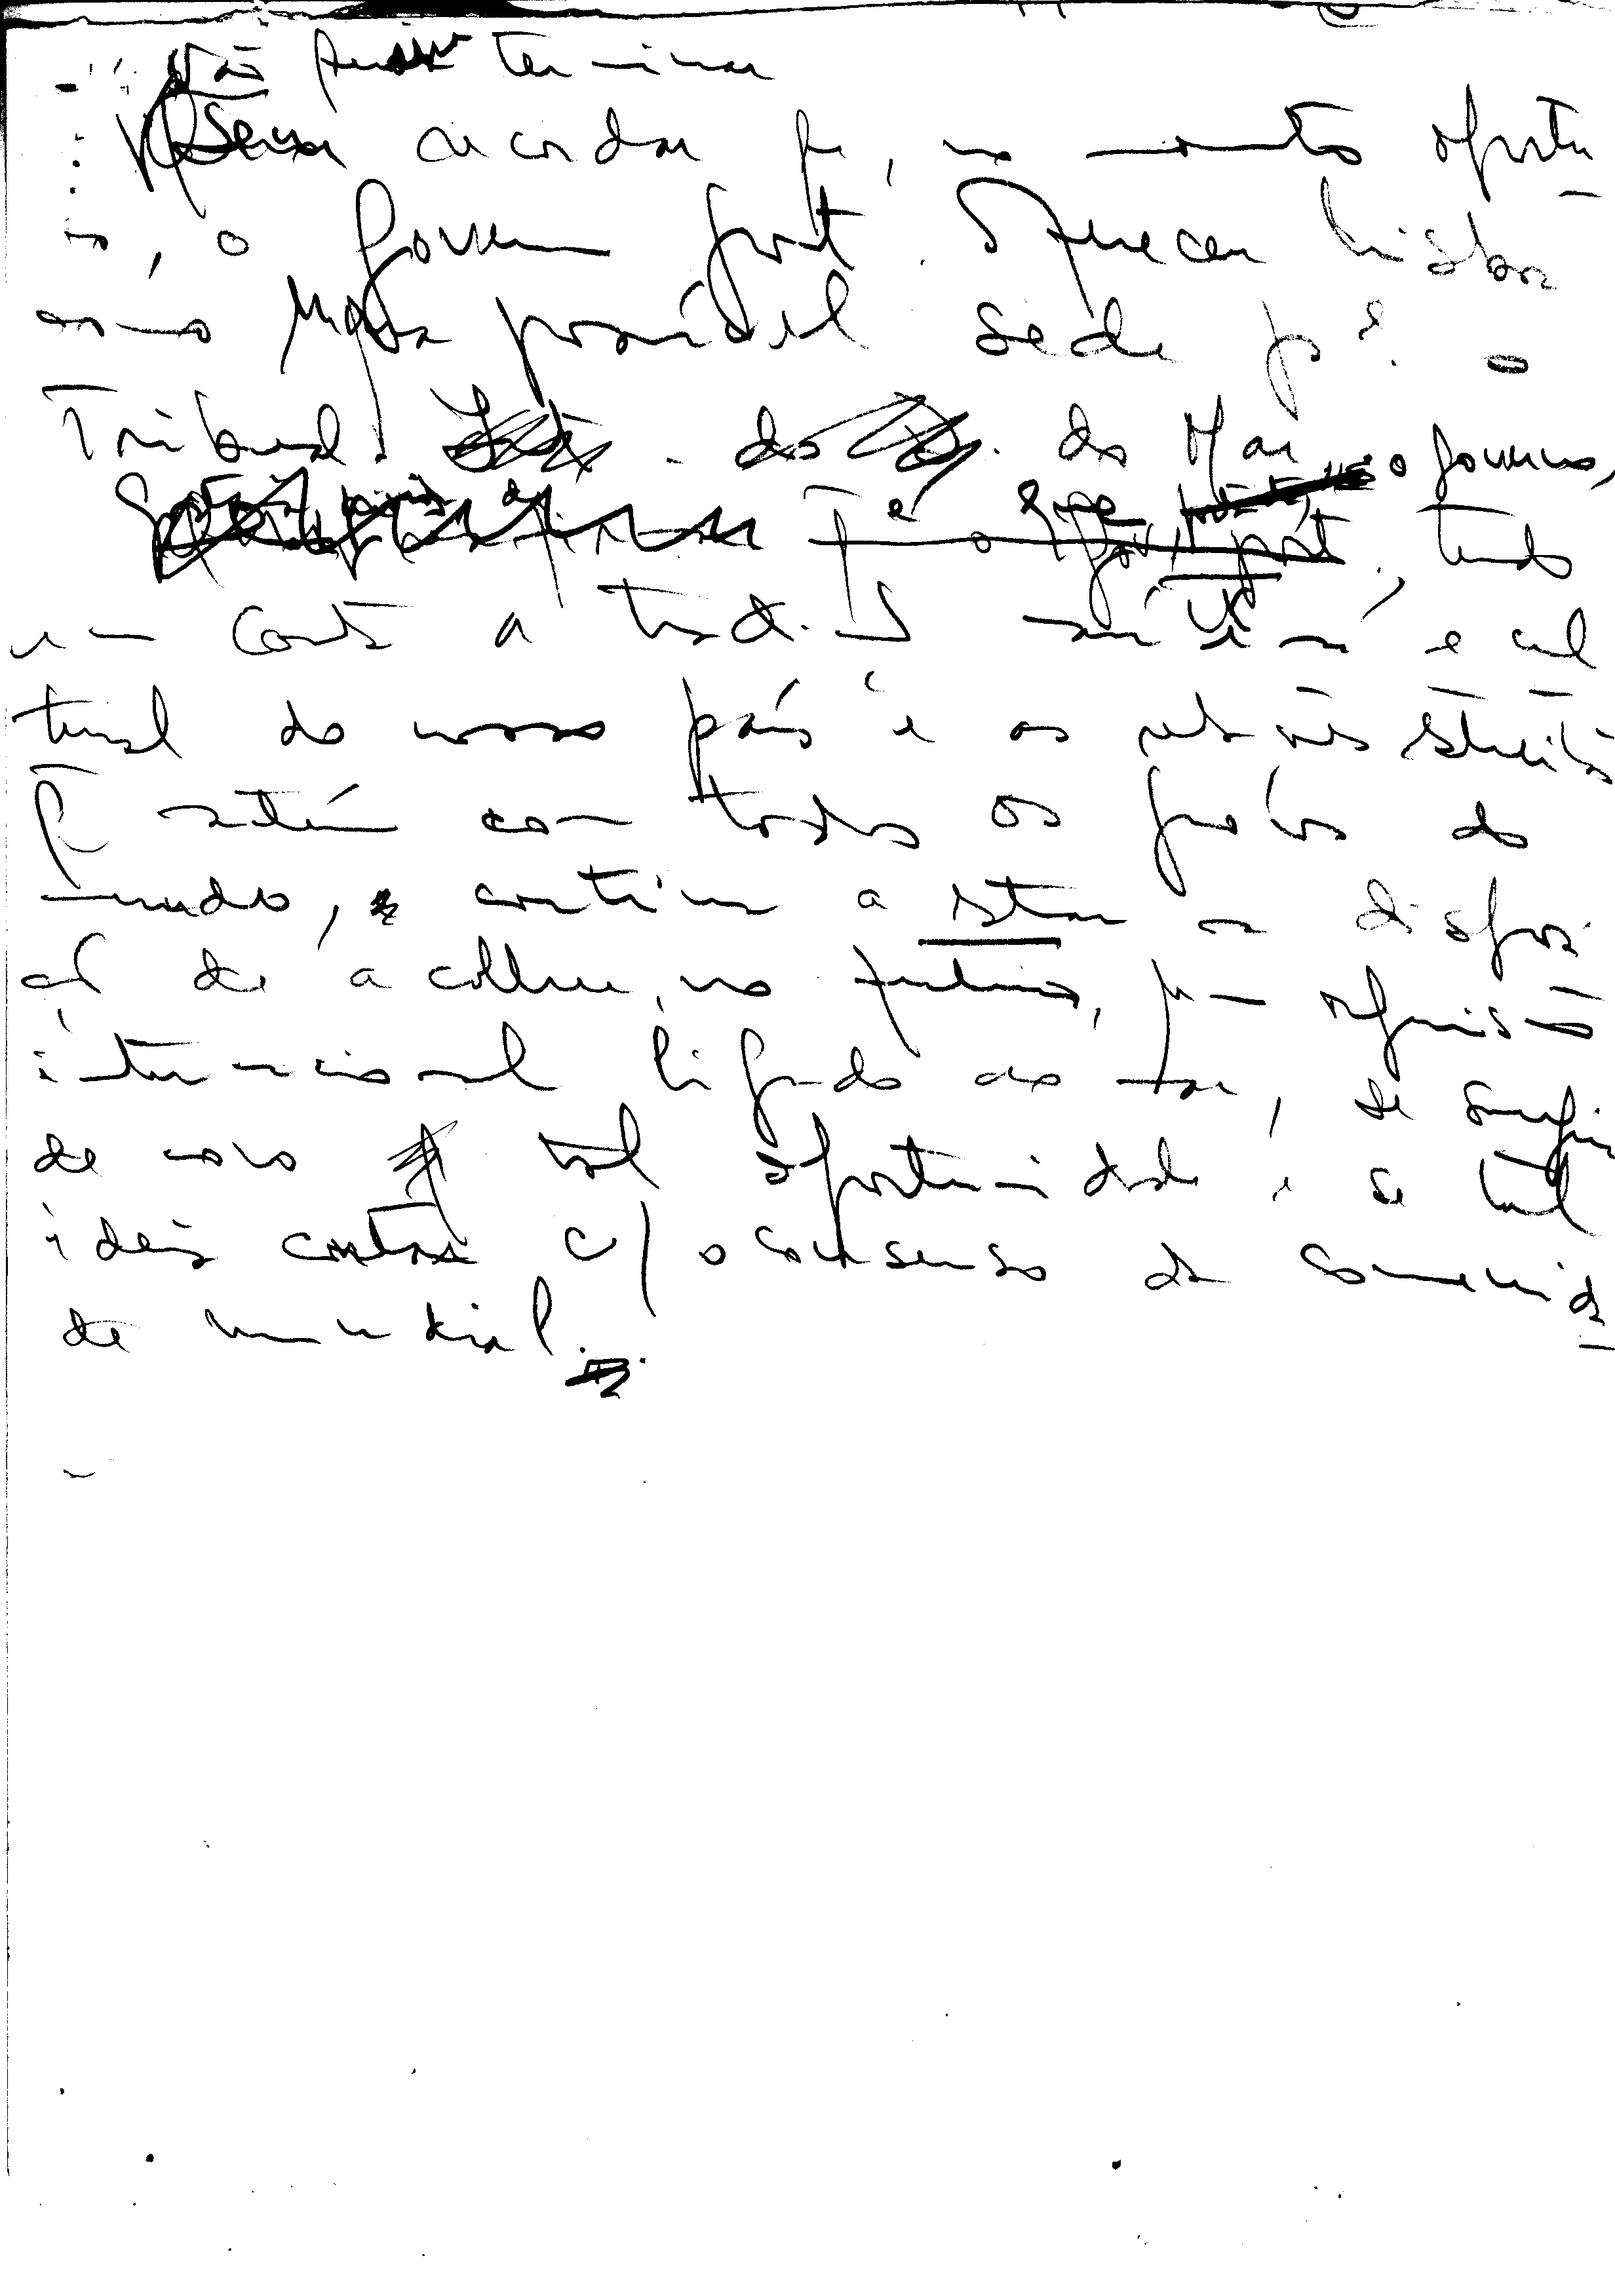 Não quero terminar
sem recordar q, no momento oportu-
no, o Govern port. ofereceu Lisboa
como possível sede p.ª o
Tribunal do do Mar o governo,
q o port., tendo
em conta a trad. marítima e cul
tural do nosso país e as relações estreitas
q mantém com todos os povos do
mundo, continua a estar na disposi
ção de acolher, no futuro, um organismo
internacional ligado ao mar, se surgir
de novo tal oportunidade e se tal
ideia contar c/ o consenso da comunida-
de mundial.